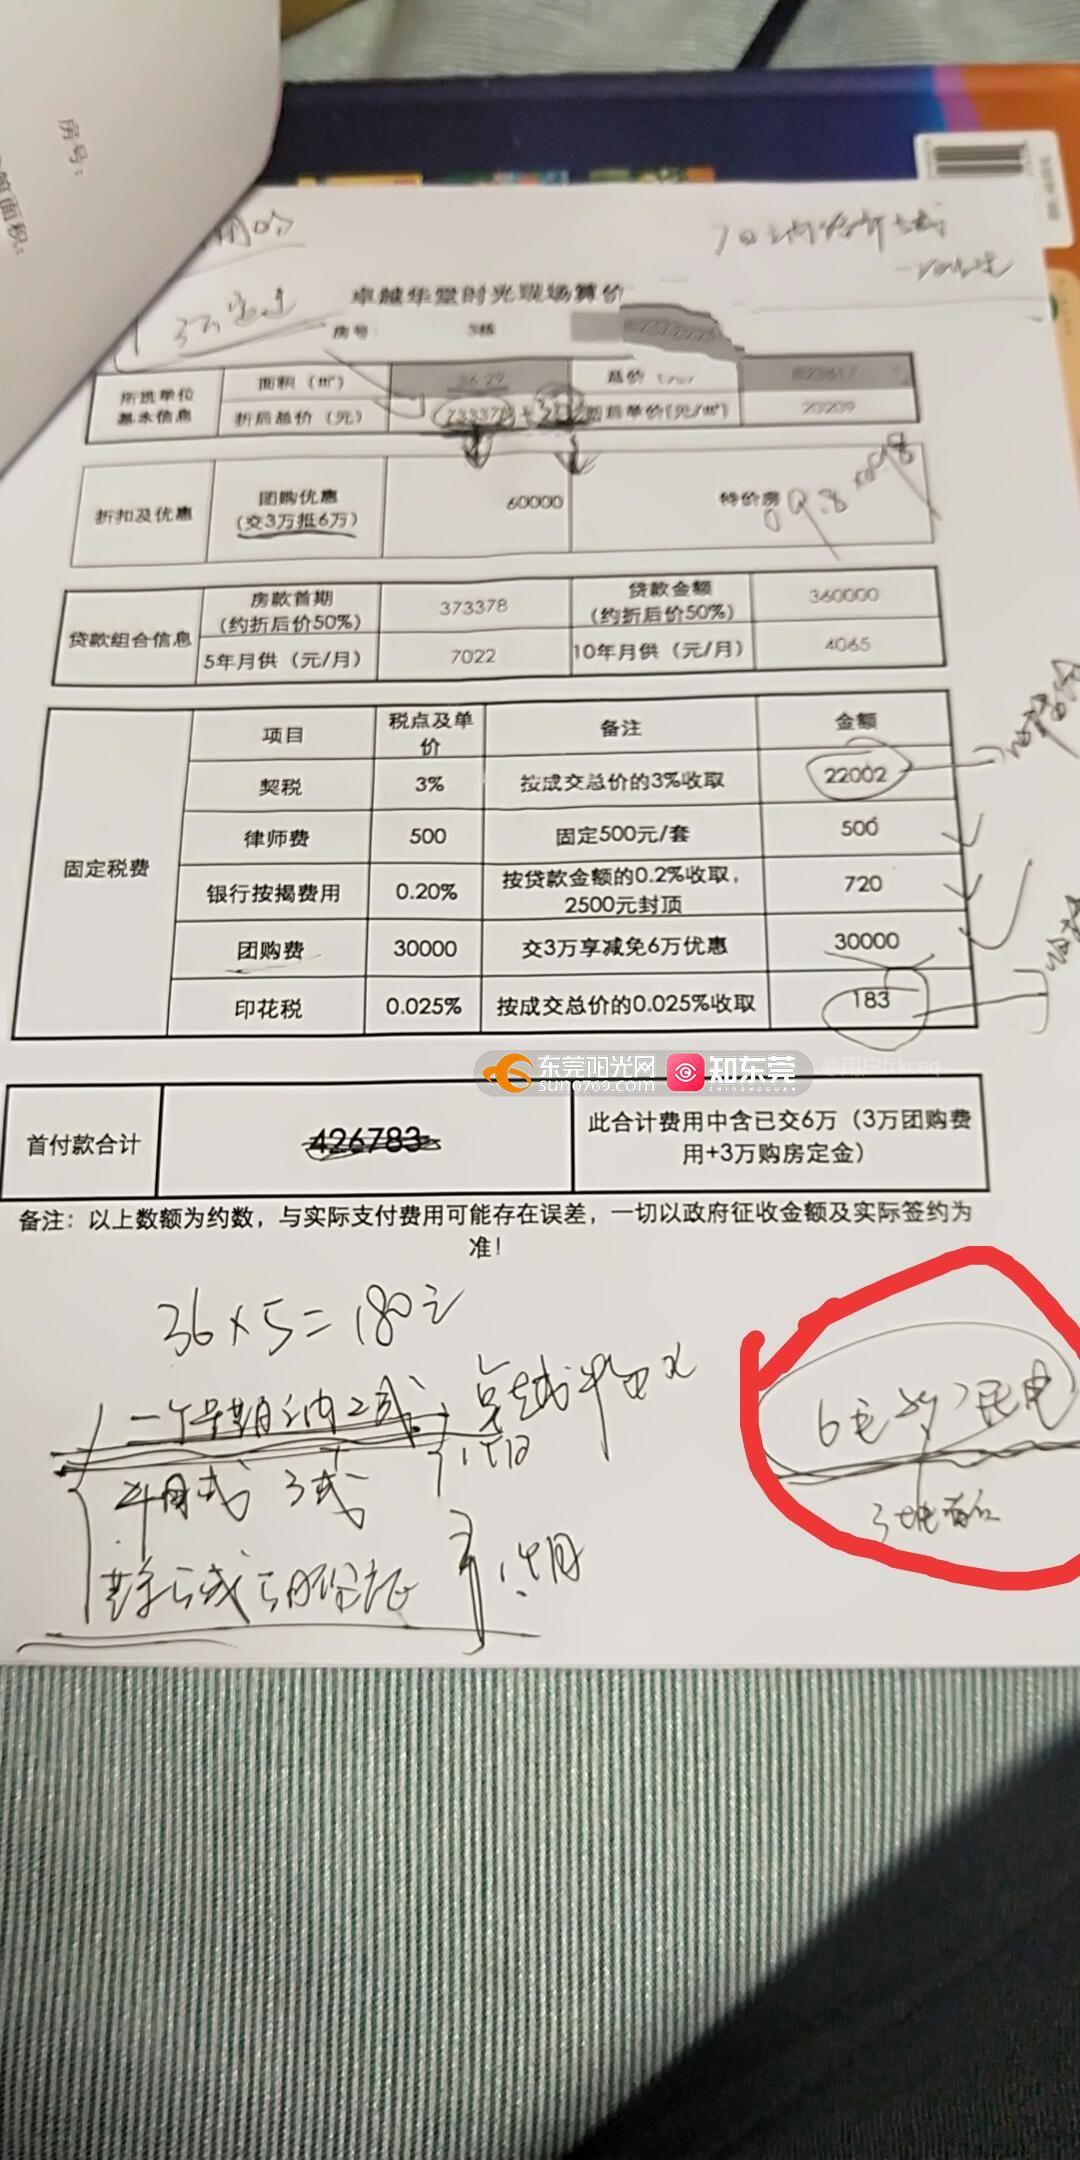 房号:
面积:
卓越华堂时光现场算价
房号: 3栋
所选单位基本信息 面积（㎡） 36.29 总价 823617
折后总价（元） 733378 折后单价(元/㎡) 20209
折扣及优惠 团购优惠（交3万抵6万） 60000 特价房
贷款组合信息 房款首期（约折后价50%） 373378 贷款金额（约折后价50%） 360000
5年月供（元/月） 7022 10年月供（元/月） 4065
项目 税点及单价 备注 金额
固定税费 契税 3% 按成交总价的3%收取 22002
律师费 500 固定500元/套 500
银行按揭费用 0.20% 按贷款金额的0.2%收取，2500元封顶 720
团购费 30000 交3万享减免6万优惠 30000
印花税 0.025% 按成交总价的0.025%收取 183
东莞阳光网 sun0769.com 知东莞 ZHIDONGGUAN @用户frkceq
首付款合计 426783 此合计费用中含已交6万（3万团购费用+3万购房定金）
备注：以上数额为约数，与实际支付费用可能存在误差，一切以政府征收金额及实际签约为准！
36×5=180元
一个星期之内
6毛多 民电
1个月